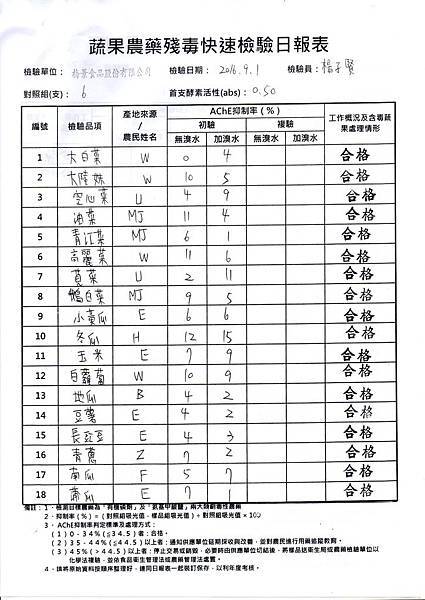 蔬果農藥殘毒快速檢驗日報表
檢驗單位： 裕景食品股份有限公司 檢驗日期： 2016.9.1 檢驗員： 楊子賢
對照組(支)： 6 首支酵素活性(abs)： 0.50
編號 檢驗品項 產地來源/農民姓名 AChE抑制率(%) 工作概況及含毒蔬果處理情形
初驗 複驗
無溴水 加溴水 無溴水 加溴水
1 大白菜 W 0 4 合格
2 大陸妹 W 10 5 合格
3 空心菜 U 4 9 合格
4 油菜 MJ 11 4 合格
5 青江菜 MJ 6 1 合格
6 高麗菜 W 11 6 合格
7 莧菜 U 2 11 合格
8 鵝白菜 MJ 9 5 合格
9 小黃瓜 E 6 6 合格
10 冬瓜 H 12 15 合格
11 玉米 E 7 9 合格
12 白蘿蔔 W 10 9 合格
13 地瓜 B 4 2 合格
14 豆薯 E 4 2 合格
15 長豇豆 E 4 3 合格
16 青蔥 Z 7 2 合格
17 南瓜 F 5 7 合格
18 E 7 1 合格
備註：1、檢測目標農藥為「有機磷劑」及「氨基甲酸鹽」兩大類劇毒性農藥
2、抑制率(%)=(對照組吸光值-樣品組吸光值)÷對照組吸光值×100
3、AChE抑制率判定標準及處理方式：
(1)0-34%(≦34.5)者：合格。
(2)35-44%(≦44.5)以上者：通知供應單位延期採收與改善，並對農民進行用藥追蹤教育。
(3)45%(>44.5)以上者：停止交易或銷毀，必要時由供應單位切結後，將樣品送衛生局或農藥檢驗單位以
化學法複檢，並依食品衛生管理法或農藥管理法處置。
4、請將原始資料按順序整理好，連同日報表一起裝訂保存，以利年度考核。